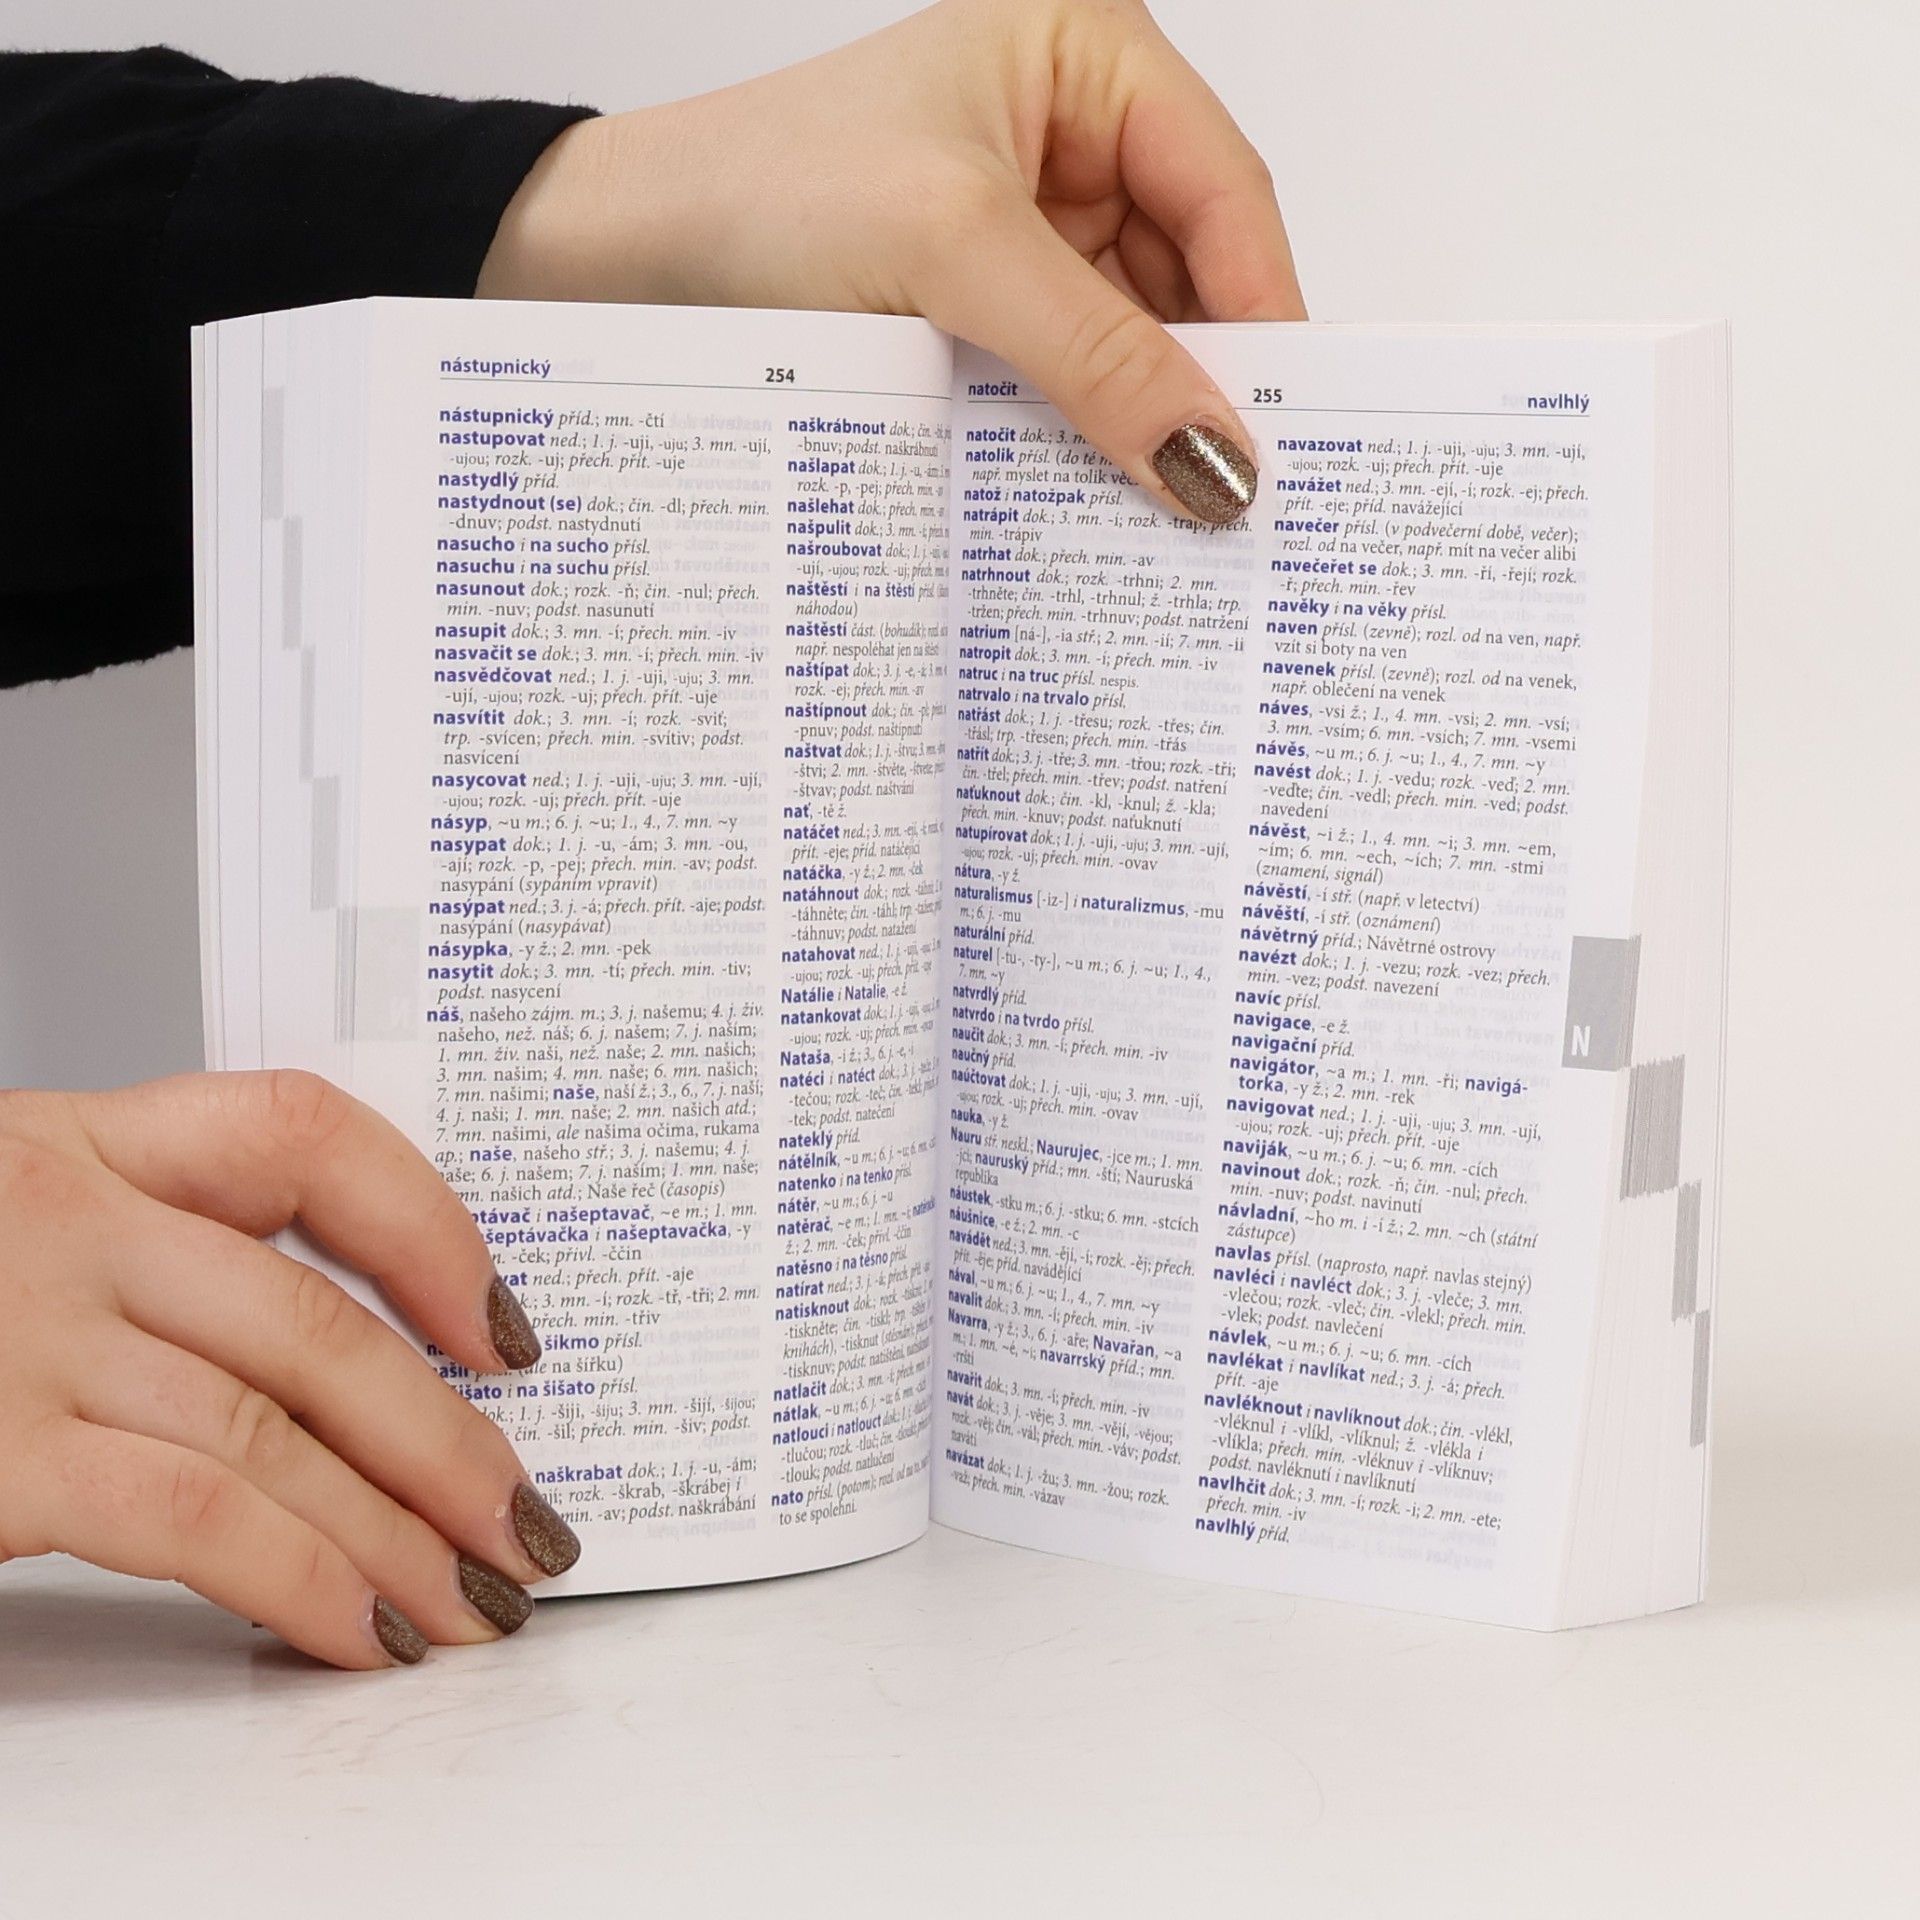 nástupnický
254
nástupnický příd.; mn. -čtí
nastupovat ned.; 1. j. -uji, -uju; 3. mn. -ují,
-ujou; rozk. -uj; přech. přít. -uje
nastydlý příd.
nastydnout (se) dok.; čin. -dl; přech. min.
-dnuv; podst. nastydnutí
nasucho i na sucho přísl.
nasuchu i na suchu přísl.
nasunout dok.; rozk. -ň; čin. -nul; přech.
min. -nuv; podst. nasunutí
nasupit dok.; 3. mn. -í; přech. min. -iv
nasvačit se dok.; 3. mn. -í; přech. min. -iv
nasvědčovat ned.; 1. j. -uji, -uju; 3. mn.
-ují, -ujou; rozk. -uj; přech. přít. -uje
nasvítit dok.; 3. mn. -í; rozk. -sviť;
trp. -svícen; přech. min. -svítiv; podst.
nasvícení
nasycovat ned.; 1. j. -uji, -uju; 3. mn. -ují,
-ujou; rozk. -uj; přech. přít. -uje
násyp, ~u m.; 6. j. ~u; 1., 4., 7. mn. ~y
nasypat dok.; 1. j. -u, -ám; 3. mn. -ou,
-ají; rozk. -p, -pej; přech. min. -av; podst.
nasypání (sypáním vpravit)
nasýpat ned.; 3. j. -á; přech. přít. -aje; podst.
nasýpání (nasypávat)
násypka, -y ž.; 2. mn. -pek
nasytit dok.; 3. mn. -tí; přech. min. -tiv;
podst. nasycení
náš, našeho zájm. m.; 3. j. našemu; 4. j. živ.
našeho, než. náš; 6. j. našem; 7. j. naším;
1. mn. živ. naši, než. naše; 2. mn. našich;
3. mn. našim; 4. mn. naše; 6. mn. našich;
7. mn. našimi; naše, naší ž.; 3., 6., 7. j. naší;
4. j. naši; 1. mn. naše; 2. mn. našich atd.;
7. mn. našimi, ale našima očima, rukama
ap.; naše, našeho stř.; 3. j. našemu; 4. j.
naše; 6. j. našem; 7. j. naším; 1. mn. naše;
mn. našich atd.; Naše řeč (časopis)
i našeptavač, ~e m.; 1. mn.
i našeptavačka, -y
-ček; přivl. -ččin
ned.; přech. přít. -aje
3. mn. -í; rozk. -tř, -tři; 2. mn.
přech. min. -třiv
šikmo přísl.
(ale na šířku)
i na šišato přísl.
1. j. -šiji, -šiju; 3. mn. -šijí, -šijou;
čin. -šil; přech. min. -šiv; podst.
naškrabat dok.; 1. j. -u, -ám;
rozk. -škrab, -škrábej i
min. -av; podst. naškrábání
naškrábnout dok.; čin.
-bnuv; podst. naškrábnutí
našlapat dok.; 1. j. -u, -ám;
rozk. -p, -pej; přech. min.
našlehat dok.; přech. min.
našpulit dok.; 3. mn. -í; přech.
našroubovat dok.; 1. j. -uji,
-ují, -ujou; rozk. -uj; přech.
naštěstí i na štěstí přísl.
náhodou)
naštěstí část. (bohudík);
např. nespoléhat jen na štěstí
naštípat dok.; 3. j. -e, -á;
rozk. -ej; přech. min. -av
naštípnout dok.; čin. -pl; přech.
-pnuv; podst. naštípnutí
naštvat dok.; 1. j. -štvu; 3. mn.
-štvi; 2. mn. -štvěte,
-štvav; podst. naštvání
nať, -tě ž.
natáčet ned.; 3. mn. -ejí, -í;
přít. -eje; příd. natáčející
natáčka, -y ž.; 2. mn. -ček
natáhnout dok.; rozk. -táhni;
-táhněte; čin. -táhl; trp.
-táhnuv; podst. natažení
natahovat ned.; 1. j. -uji,
-ujou; rozk. -uj; přech. přít. -uje
Natálie i Natalie, -e ž.
natankovat dok.; 1. j. -uji,
-ujou; rozk. -uj; přech. min.
Nataša, -i ž.; 3., 6. j. -e, -i
natéci i natéct dok.; 3. j.
-tečou; rozk. -teč; čin. -tekl;
-tek; podst. natečení
nateklý příd.
nátělník, ~u m.; 6. j. ~u;
natenko i na tenko přísl.
nátěr, ~u m.; 6. j. ~u
natěrač, ~e m.; 1. mn.
ž.; 2. mn. -ček; přivl. -ččin
natěsno i na těsno přísl.
natírat ned.; 3. j. -á; přech. přít.
natisknout dok.; rozk. -tiskni;
-tiskněte; čin. -tiskl; trp.
knihách), -tisknut
-tisknuv; podst. natištění,
natlačit dok.; 3. mn. -í; přech. min.
nátlak, ~u m.; 6. j. ~u; 6. mn.
natlouci i natlouct dok.; 1. j.
-tlučou; rozk. -tluč; čin.
-tlouk; podst. natlučení
nato přísl. (potom); rozl. od na to,
to se spolehni.
natočit
255
navlhlý
natočit dok.; 3. m
natolik přísl. (do té m
např. myslet na tolik věc
natož i natožpak přísl.
natrápit dok.; 3. mn. -í; rozk. -trap; přech.
min. -trápiv
natrhat dok.; přech. min. -av
natrhnout dok.; rozk. -trhni; 2. mn.
-trhněte; čin. -trhl, -trhnul; ž. -trhla; trp.
-tržen; přech. min. -trhnuv; podst. natržení
natrium [ná-], -ia stř.; 2. mn. -ií; 7. mn. -ii
natropit dok.; 3. mn. -í; přech. min. -iv
natruc i na truc přísl. nespis.
natrvalo i na trvalo přísl.
natřást dok.; 1. j. -třesu; rozk. -třes; čin.
-třásl; trp. -třesen; přech. min. -třás
natřít dok.; 3. j. -tře; 3. mn. -třou; rozk. -tři;
čin. -třel; přech. min. -třev; podst. natření
naťuknout dok.; čin. -kl, -knul; ž. -kla;
přech. min. -knuv; podst. naťuknutí
natupírovat dok.; 1. j. -uji, -uju; 3. mn. -ují,
-ujou; rozk. -uj; přech. min. -ovav
nátura, -y ž.
naturalismus [-iz-] i naturalizmus, -mu
m.; 6. j. -mu
naturální příd.
naturel [-tu-, -ty-], ~u m.; 6. j. ~u; 1., 4.,
7. mn. ~y
natvrdlý příd.
natvrdo i na tvrdo přísl.
naučit dok.; 3. mn. -í; přech. min. -iv
naučný příd.
naúčtovat dok.; 1. j. -uji, -uju; 3. mn. -ují,
-ujou; rozk. -uj; přech. min. -ovav
nauka, -y ž.
Nauru stř. neskl.; Naurujec, -jce m.; 1. mn.
-jci; nauruský příd.; mn. -ští; Nauruská
republika
náustek, -stku m.; 6. j. -stku; 6. mn. -stcích
náušnice, -e ž.; 2. mn. -c
navádět ned.; 3. mn. -ějí, -í; rozk. -ěj; přech.
přít. -ěje; příd. navádějící
nával, ~u m.; 6. j. ~u; 1., 4., 7. mn. ~y
navalit dok.; 3. mn. -í; přech. min. -iv
Navarra, -y ž.; 3., 6. j. -aře; Navařan, ~a
m.; 1. mn. ~é, ~i; navarrský příd.; mn.
-rrští
navařit dok.; 3. mn. -í; přech. min. -iv
navát dok.; 3. j. -věje; 3. mn. -vějí, -vějou;
rozk. -věj; čin. -vál; přech. min. -váv; podst.
navátí
navázat dok.; 1. j. -žu; 3. mn. -žou; rozk.
-važ; přech. min. -vázav
navazovat ned.; 1. j. -uji, -uju; 3. mn. -ují,
-ujou; rozk. -uj; přech. přít. -uje
navážet ned.; 3. mn. -ejí, -í; rozk. -ej; přech.
přít. -eje; příd. navážející
navečer přísl. (v podvečerní době, večer);
rozl. od na večer, např. mít na večer alibi
navečeřet se dok.; 3. mn. -ří, -řejí; rozk.
-ř; přech. min. -řev
navěky i na věky přísl.
naven přísl. (zevně); rozl. od na ven, např.
vzít si boty na ven
navenek přísl. (zevně); rozl. od na venek,
např. oblečení na venek
náves, -vsi ž.; 1., 4. mn. -vsi; 2. mn. -vsí;
3. mn. -vsím; 6. mn. -vsích; 7. mn. -vsemi
návěs, ~u m.; 6. j. ~u; 1., 4., 7. mn. ~y
navést dok.; 1. j. -vedu; rozk. -veď; 2. mn.
-veďte; čin. -vedl; přech. min. -ved; podst.
navedení
návěst, ~i ž.; 1., 4. mn. ~i; 3. mn. ~em,
~ím; 6. mn. ~ech, ~ích; 7. mn. -stmi
(znamení, signál)
návěstí, -í stř. (např. v letectví)
návěští, -í stř. (oznámení)
návětrný příd.; Návětrné ostrovy
navézt dok.; 1. j. -vezu; rozk. -vez; přech.
min. -vez; podst. navezení
navíc přísl.
navigace, -e ž.
navigační příd.
navigátor, ~a m.; 1. mn. -ři; navigá-
torka, -y ž.; 2. mn. -rek
navigovat ned.; 1. j. -uji, -uju; 3. mn. -ují,
-ujou; rozk. -uj; přech. přít. -uje
naviják, ~u m.; 6. j. ~u; 6. mn. -cích
navinout dok.; rozk. -ň; čin. -nul; přech.
min. -nuv; podst. navinutí
návladní, ~ho m. i -í ž.; 2. mn. ~ch (státní
zástupce)
navlas přísl. (naprosto, např. navlas stejný)
navléci i navléct dok.; 3. j. -vleče; 3. mn.
-vlečou; rozk. -vleč; čin. -vlekl; přech. min.
-vlek; podst. navlečení
návlek, ~u m.; 6. j. ~u; 6. mn. -cích
navlékat i navlíkat ned.; 3. j. -á; přech.
přít. -aje
navléknout i navlíknout dok.; čin. -vlékl,
-vléknul i -vlíkl, -vlíknul; ž. -vlékla i
-vlíkla; přech. min. -vléknuv i -vlíknuv;
podst. navléknutí i navlíknutí
navlhčit dok.; 3. mn. -í; rozk. -i; 2. mn. -ete;
přech. min. -iv
navlhlý příd.
N